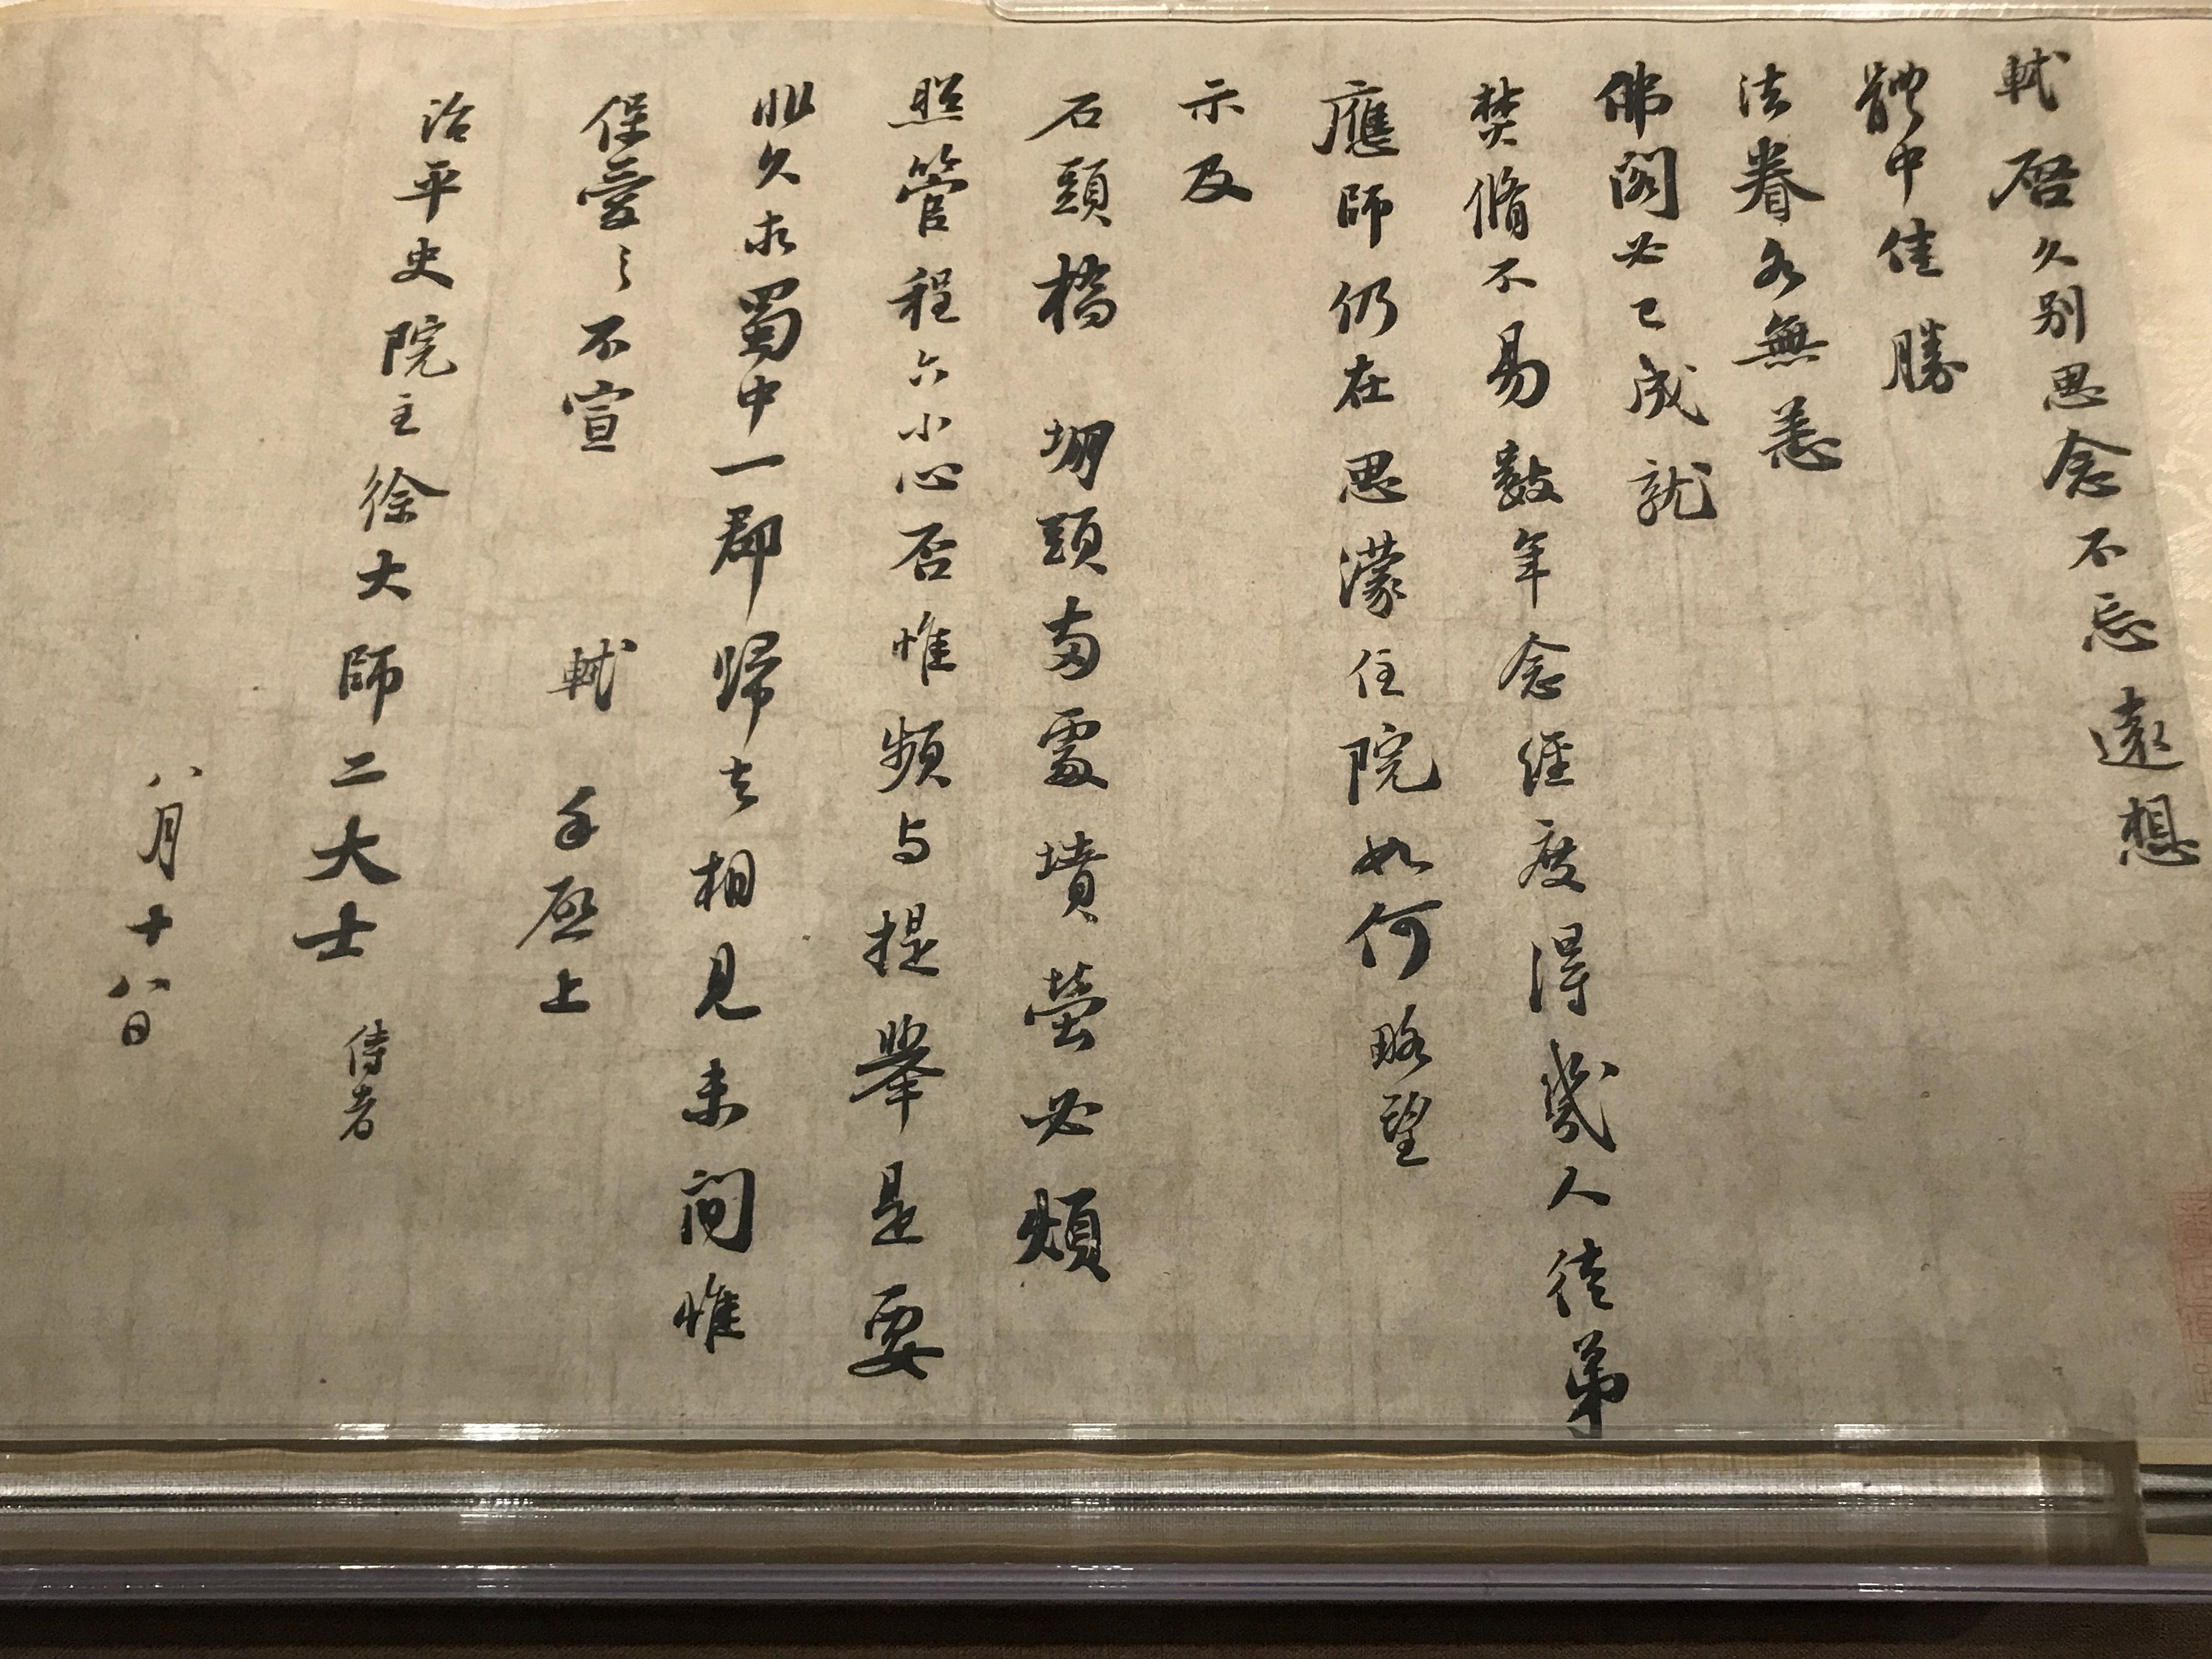 軾啓久別思念不忘遠想
體中佳勝
法眷各無恙
佛閣必已成就
焚脩不易數年念經度得幾人徒弟
應師仍在思濛住院如何略望
示及
石頭橋堋頭兩處墳塋必煩
照管程六小心否惟頻与提舉是要
非久求蜀中一郡歸去相見未間惟
保愛之不宣
軾手啓上
治平史院主徐大師二大士侍者
八月十八日